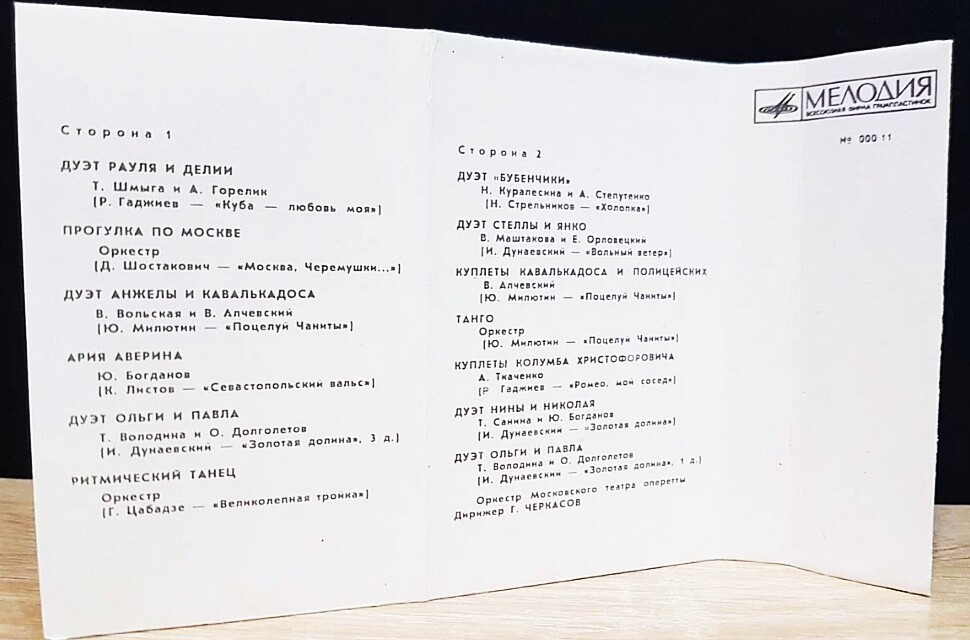 Сторона 1
ДУЭТ РАУЛЯ И ДЕЛИИ
Т. Шмыга и А. Горелик
(Р. Гаджиев — «Куба — любовь моя»)
ПРОГУЛКА ПО МОСКВЕ
Оркестр
(Д. Шостакович — «Москва, Черемушки...»)
ДУЭТ АНЖЕЛЫ И КАВАЛЬКАДОСА
В. Вольская и В. Алчевский
(Ю. Милютин — «Поцелуй Чаниты»)
АРИЯ АВЕРИНА
Ю. Богданов
(К. Листов — «Севастопольский вальс»)
ДУЭТ ОЛЬГИ И ПАВЛА
Т. Володина и О. Долголетов
(И. Дунаевский — «Золотая долина», 3 д.)
РИТМИЧЕСКИЙ ТАНЕЦ
Оркестр
(Г. Цабадзе — «Великолепная тройка»)
Сторона 2
ДУЭТ «БУБЕНЧИКИ»
Н. Куралесина и А. Степутенко
(Н. Стрельников — «Холопка»)
ДУЭТ СТЕЛЛЫ И ЯНКО
В. Маштакова и Е. Орловецкий
(И. Дунаевский — «Вольный ветер»)
КУПЛЕТЫ КАВАЛЬКАДОСА И ПОЛИЦЕЙСКИХ
В. Алчевский
(Ю. Милютин — «Поцелуй Чаниты»)
ТАНГО
Оркестр
(Ю. Милютин — «Поцелуй Чаниты»)
КУПЛЕТЫ КОЛУМБА ХРИСТОФОРОВИЧА
А. Ткаченко
(Р. Гаджиев — «Ромео, мой сосед»)
ДУЭТ НИНЫ И НИКОЛАЯ
Т. Санина и Ю. Богданов
(И. Дунаевский — «Золотая долина»)
ДУЭТ ОЛЬГИ И ПАВЛА
Т. Володина и О. Долголетов
(И. Дунаевский — «Золотая долина», 1 д.)
Оркестр Московского театра оперетты
Дирижер Г. ЧЕРКАСОВ
МЕЛОДИЯ
ВСЕСОЮЗНАЯ ФИРМА ГРАМПЛАСТИНОК
№ 000 11